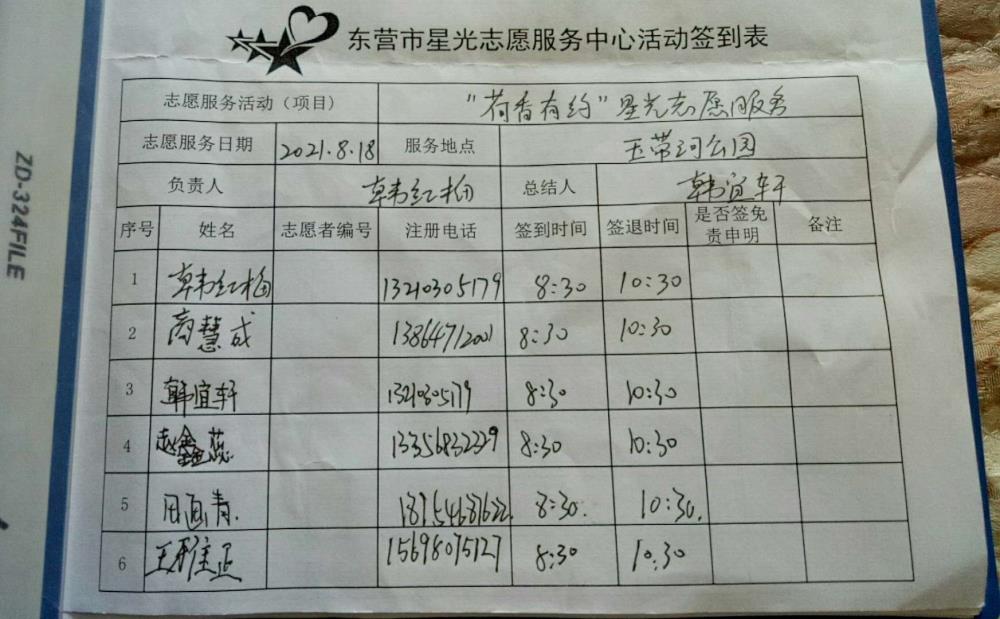 东营市星光志愿服务中心活动签到表
志愿服务活动（项目） "荷香有约"星光志愿服务
志愿服务日期 2021.8.18 服务地点 玉带河公园
负责人 韩红梅 总结人 韩宜轩
序号 姓名 志愿者编号 注册电话 签到时间 签退时间 是否签免责申明 备注
1 韩红梅 13210305179 8:30 10:30
2 商慧成 13864712001 8:30 10:30
3 韩宜轩 13210305179 8:30 10:30
4 赵鑫蕊 13356832229 8:30 10:30
5 田 青. 18754687622. 8:30. 10:30.
6 王雅正 15698075127 8:30 10:30
ZD-324FILE